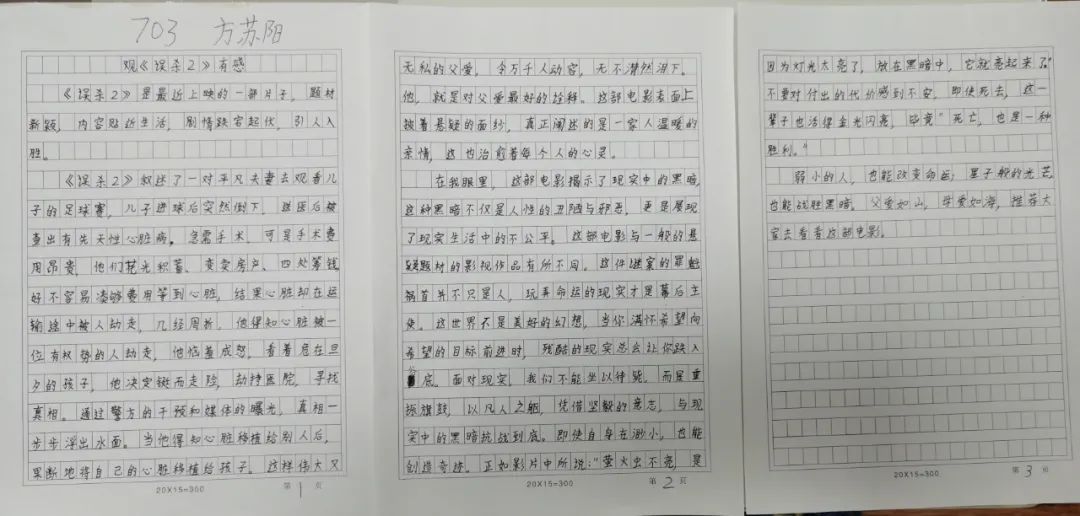 703 方苏阳
观《误杀2》有感
《误杀2》是最近上映的一部片子，题材
新颖，内容贴近生活，剧情跌宕起伏，引人入
胜。
《误杀2》叙述了一对平凡夫妻去观看儿
子的足球赛，儿子进球后突然倒下，送医后被
查出有先天性心脏病。急需手术，可是手术费
用昂贵，他们花光积蓄、变卖房产、四处筹钱
好不容易凑够费用等到心脏，结果心脏却在运
输途中被人劫走，几经周折，他得知心脏被一
位有权势的人劫走，他恼羞成怒，看着危在旦
夕的孩子，他决定铤而走险，劫持医院，寻找
真相。通过警方的干预和媒体的曝光，真相一
步步浮出水面。当他得知心脏移植给别人后，
果断地将自己的心脏移植给孩子。这样伟大又
20X15=300
第1页
无私的父爱，令万千人动容，无不潸然泪下。
他，就是对父爱最好的诠释。这部电影表面上
披着悬疑的面纱，真正阐述的是一家人温暖的
亲情，这也治愈着每个人的心灵。
在我眼里，这部电影揭示了现实中的黑暗，
这种黑暗不仅是人性的丑陋与邪恶，更是展现
了现实生活中的不公平。这部电影与一般的悬
疑题材的影视作品有所不同。这件谜案的罪魁
祸首并不只是人，玩弄命运的现实才是幕后主
使。这世界不是美好的幻想，当你满怀希望向
希望的目标前进时，残酷的现实总会让你跌入
谷底。面对现实，我们不能坐以待毙，而是重
振旗鼓，以凡人之躯，凭借坚毅的意志，与现
实中的黑暗抗战到底。即使自身在渺小，也能
创造奇迹。正如影片中所说：“萤火虫不亮，是
20X15=300
第2页
因为灯光太亮了，放在黑暗中，它就亮起来了。”
不要对付出的代价感到不安，即使死去，这一
辈子也活得金光闪亮，毕竟“死亡，也是一种
胜利。”
弱小的人，也能改变命运；星子般的光芒
也能战胜黑暗。父爱如山，母爱如海，推荐大
家去看看这部电影。
20X15=300
第3页